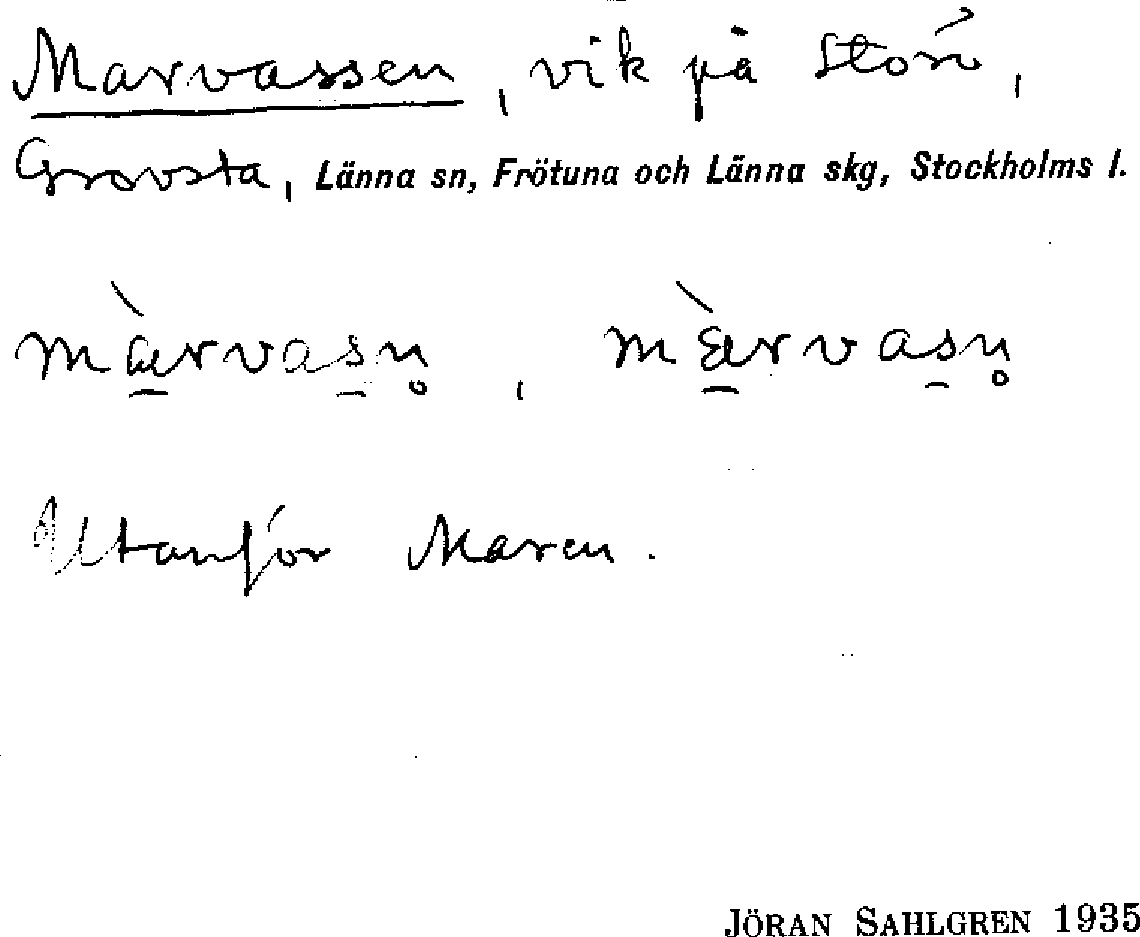 Marvassen, vik på Storö,
Gravsta, Länna sn, Frötuna och Länna skg, Stockholms l.
màrvasn̥, mæ̀rvasn̥
Utanför Maren.
JÖRAN SAHLGREN 1935